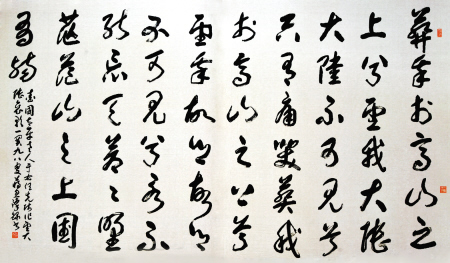 葬我於高山之
上兮望我大陸
大陸不可見兮
只有痛哭葬我
於高山之上兮
望我故鄉故鄉
不可見兮永不
能忘天蒼蒼野
茫茫山之上國
有殤
國老人于右任先生望大
陸一九八